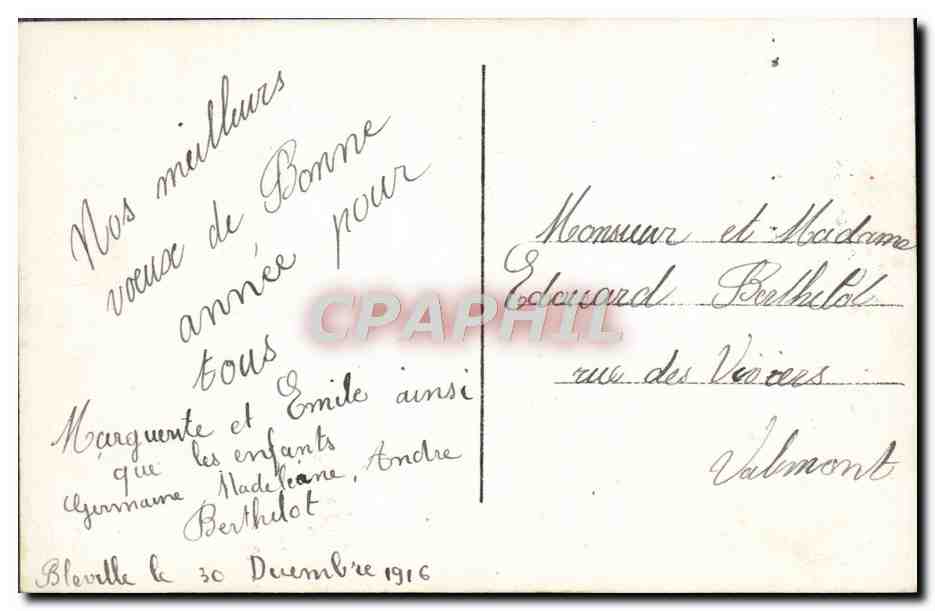 Nos meilleurs
voeux de Bonne
année pour
tous
Marguerite et Emile ainsi
que les enfants
Germaine, Madeleine, Andre
Berthelot
Bleville le 30 Decembre 1916
Monsieur et Madame
Edouard Berthelot
rue des Viviers
Valmont
CPAPHIL